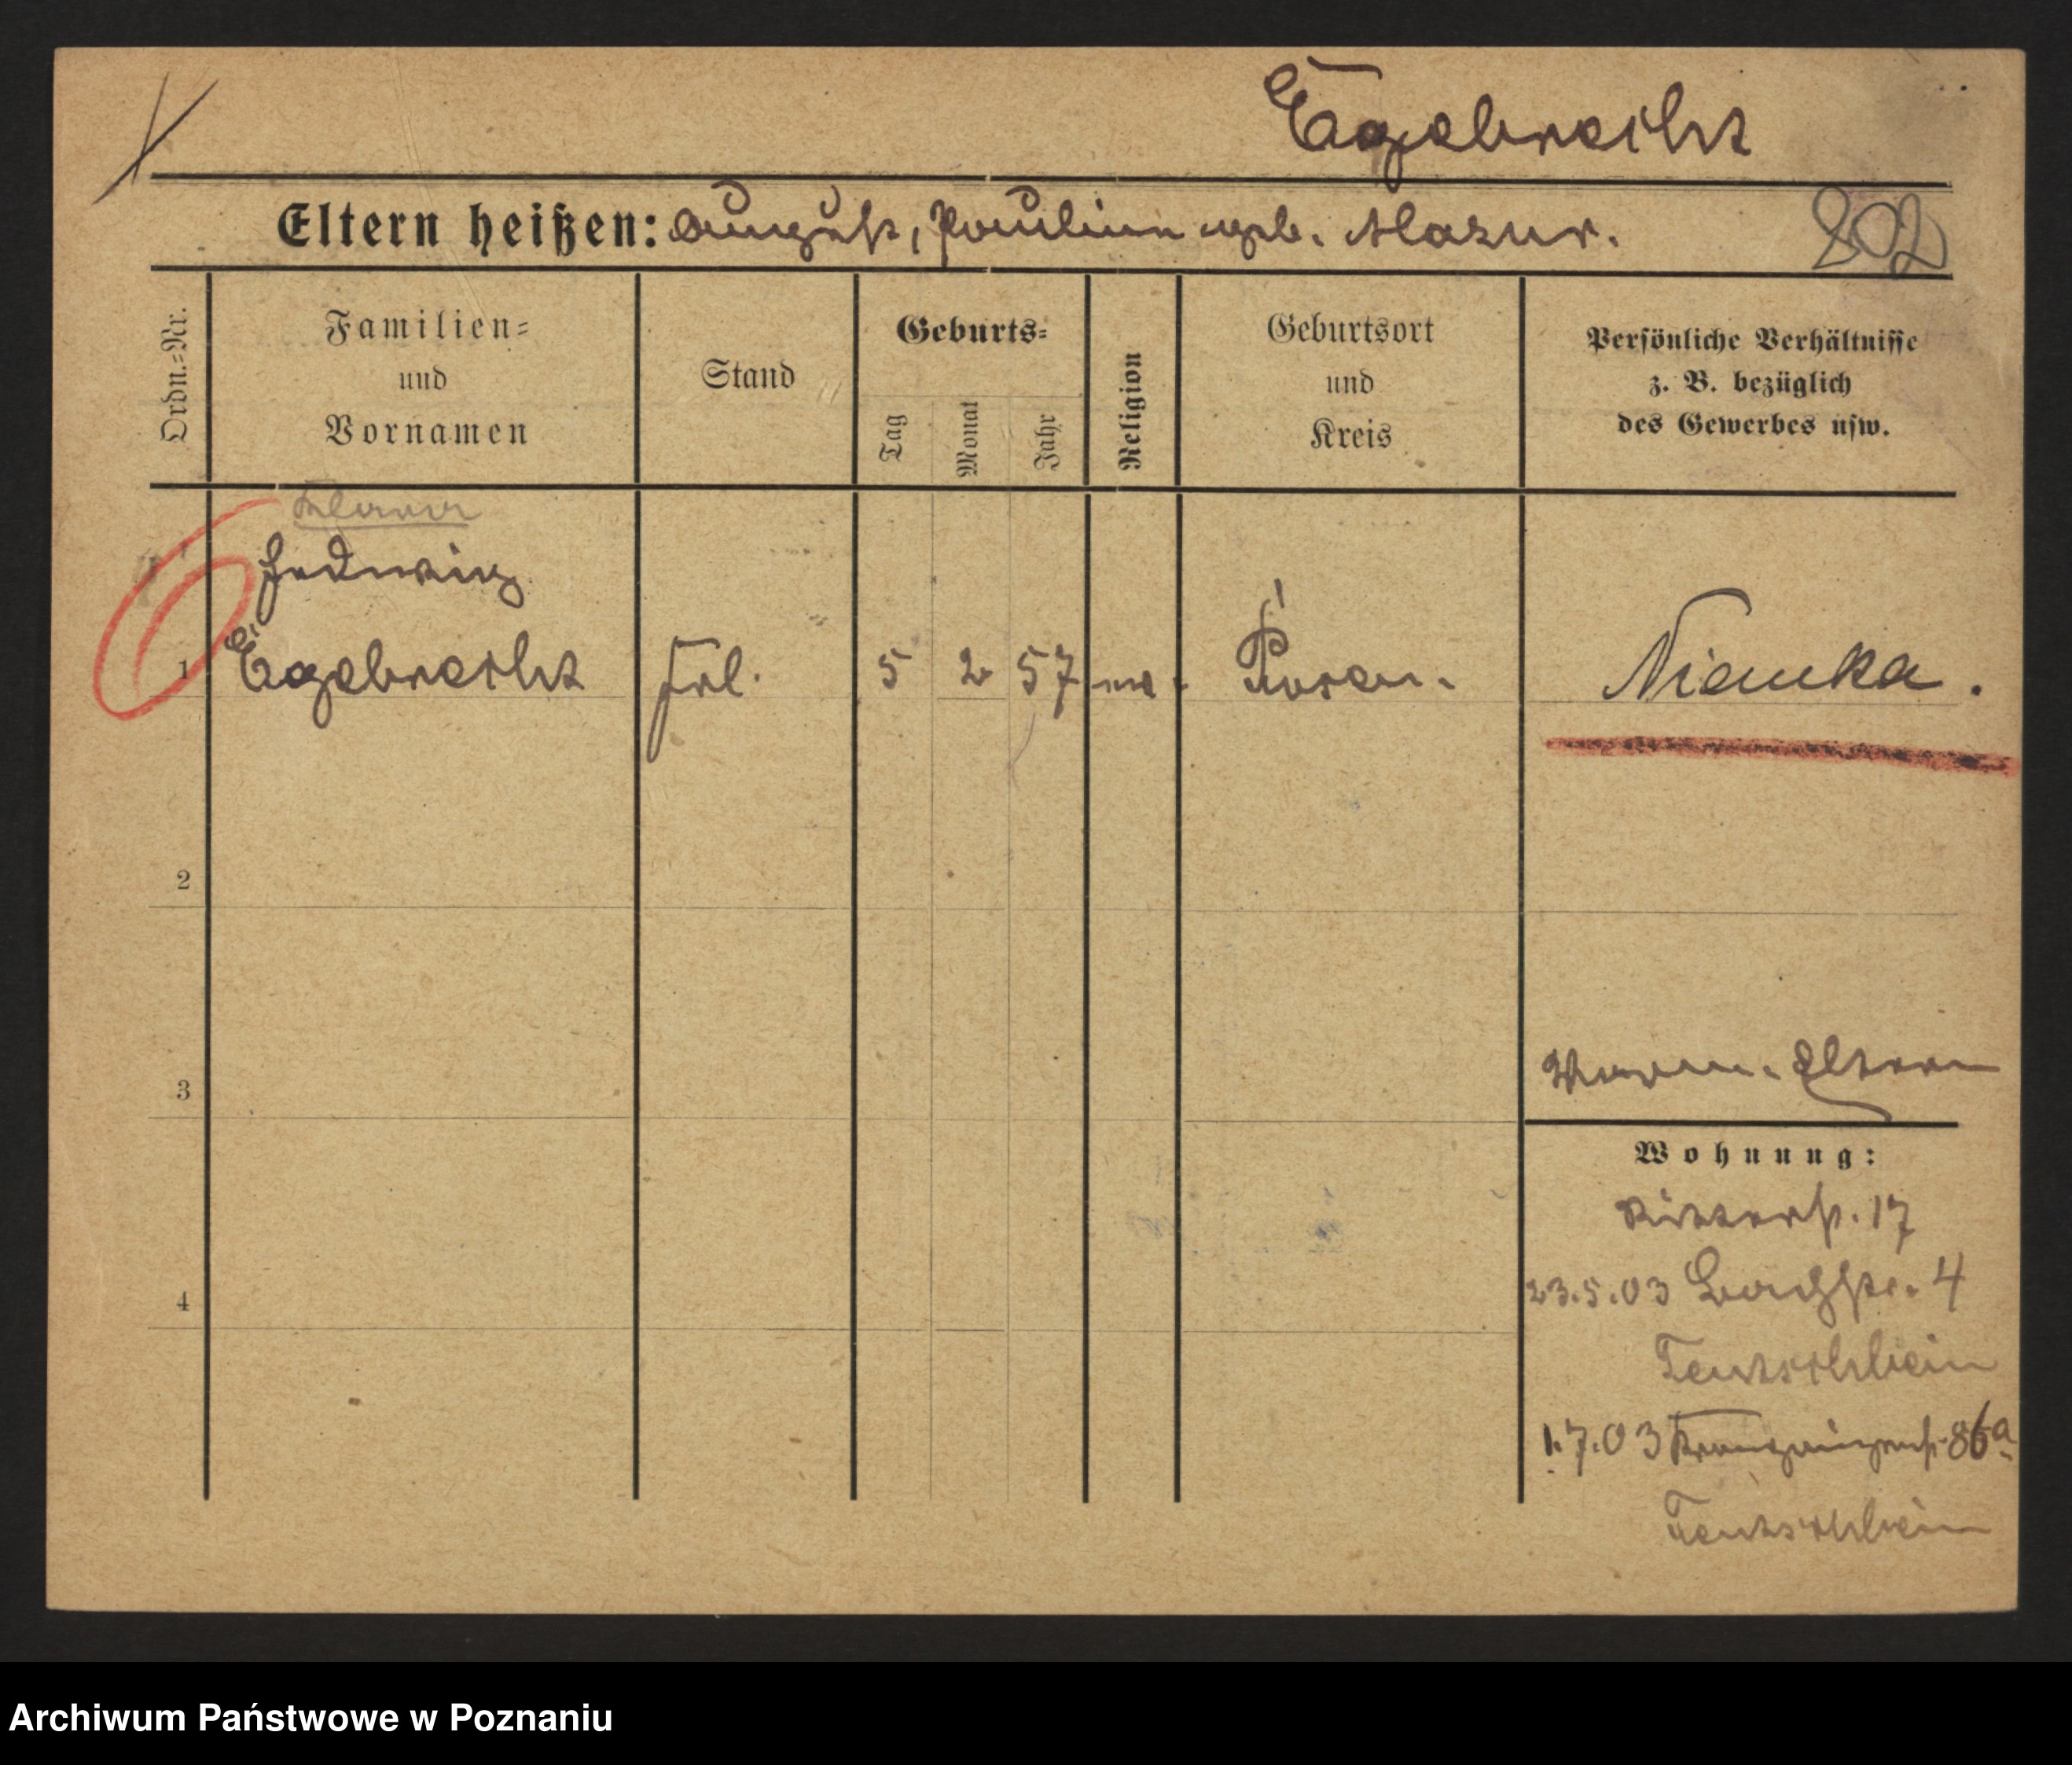 Egebrecht
Eltern heißen: August, Pauline geb. Mazur.
802
Ordn.=Nr.
Familien=
und
Vornamen
Stand
Geburts=
Tag
Monat
Jahr
Religion
Geburtsort
und
Kreis
Persönliche Verhältnisse
z. B. bezüglich
des Gewerbes usw.
Hedwig
1 Egebrecht Frl. 5 2 57 Posen. Nianka.
2
3
Eltern
Wohnung:
Ritterst. 17
23.5.03 4
4
1.7.03 86a
Archiwum Państwowe w Poznaniu